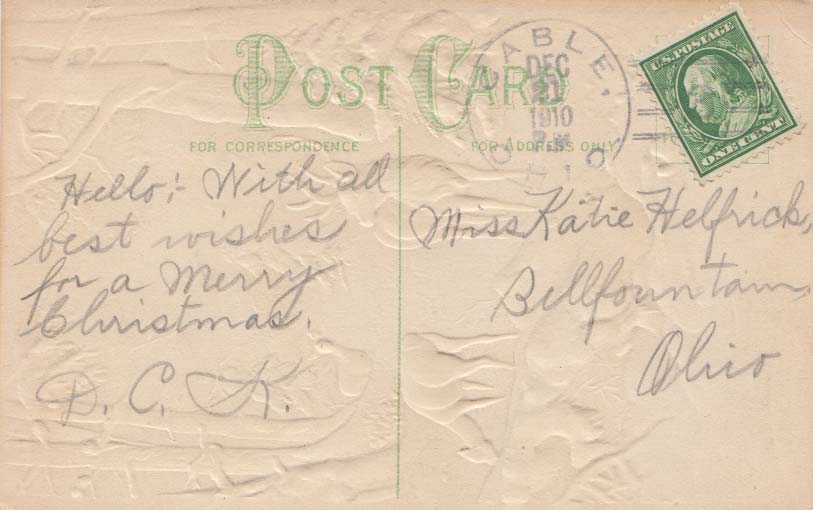 POST CARD
FOR CORRESPONDENCE
FOR ADDRESS ONLY
CABLE,
DEC
21
1910
OHIO
U.S. POSTAGE
ONE CENT
Hello:- With all
best wishes
for a Merry
Christmas.
D. C. K.
Miss Katie Helfrick,
Bellfountain,
Ohio